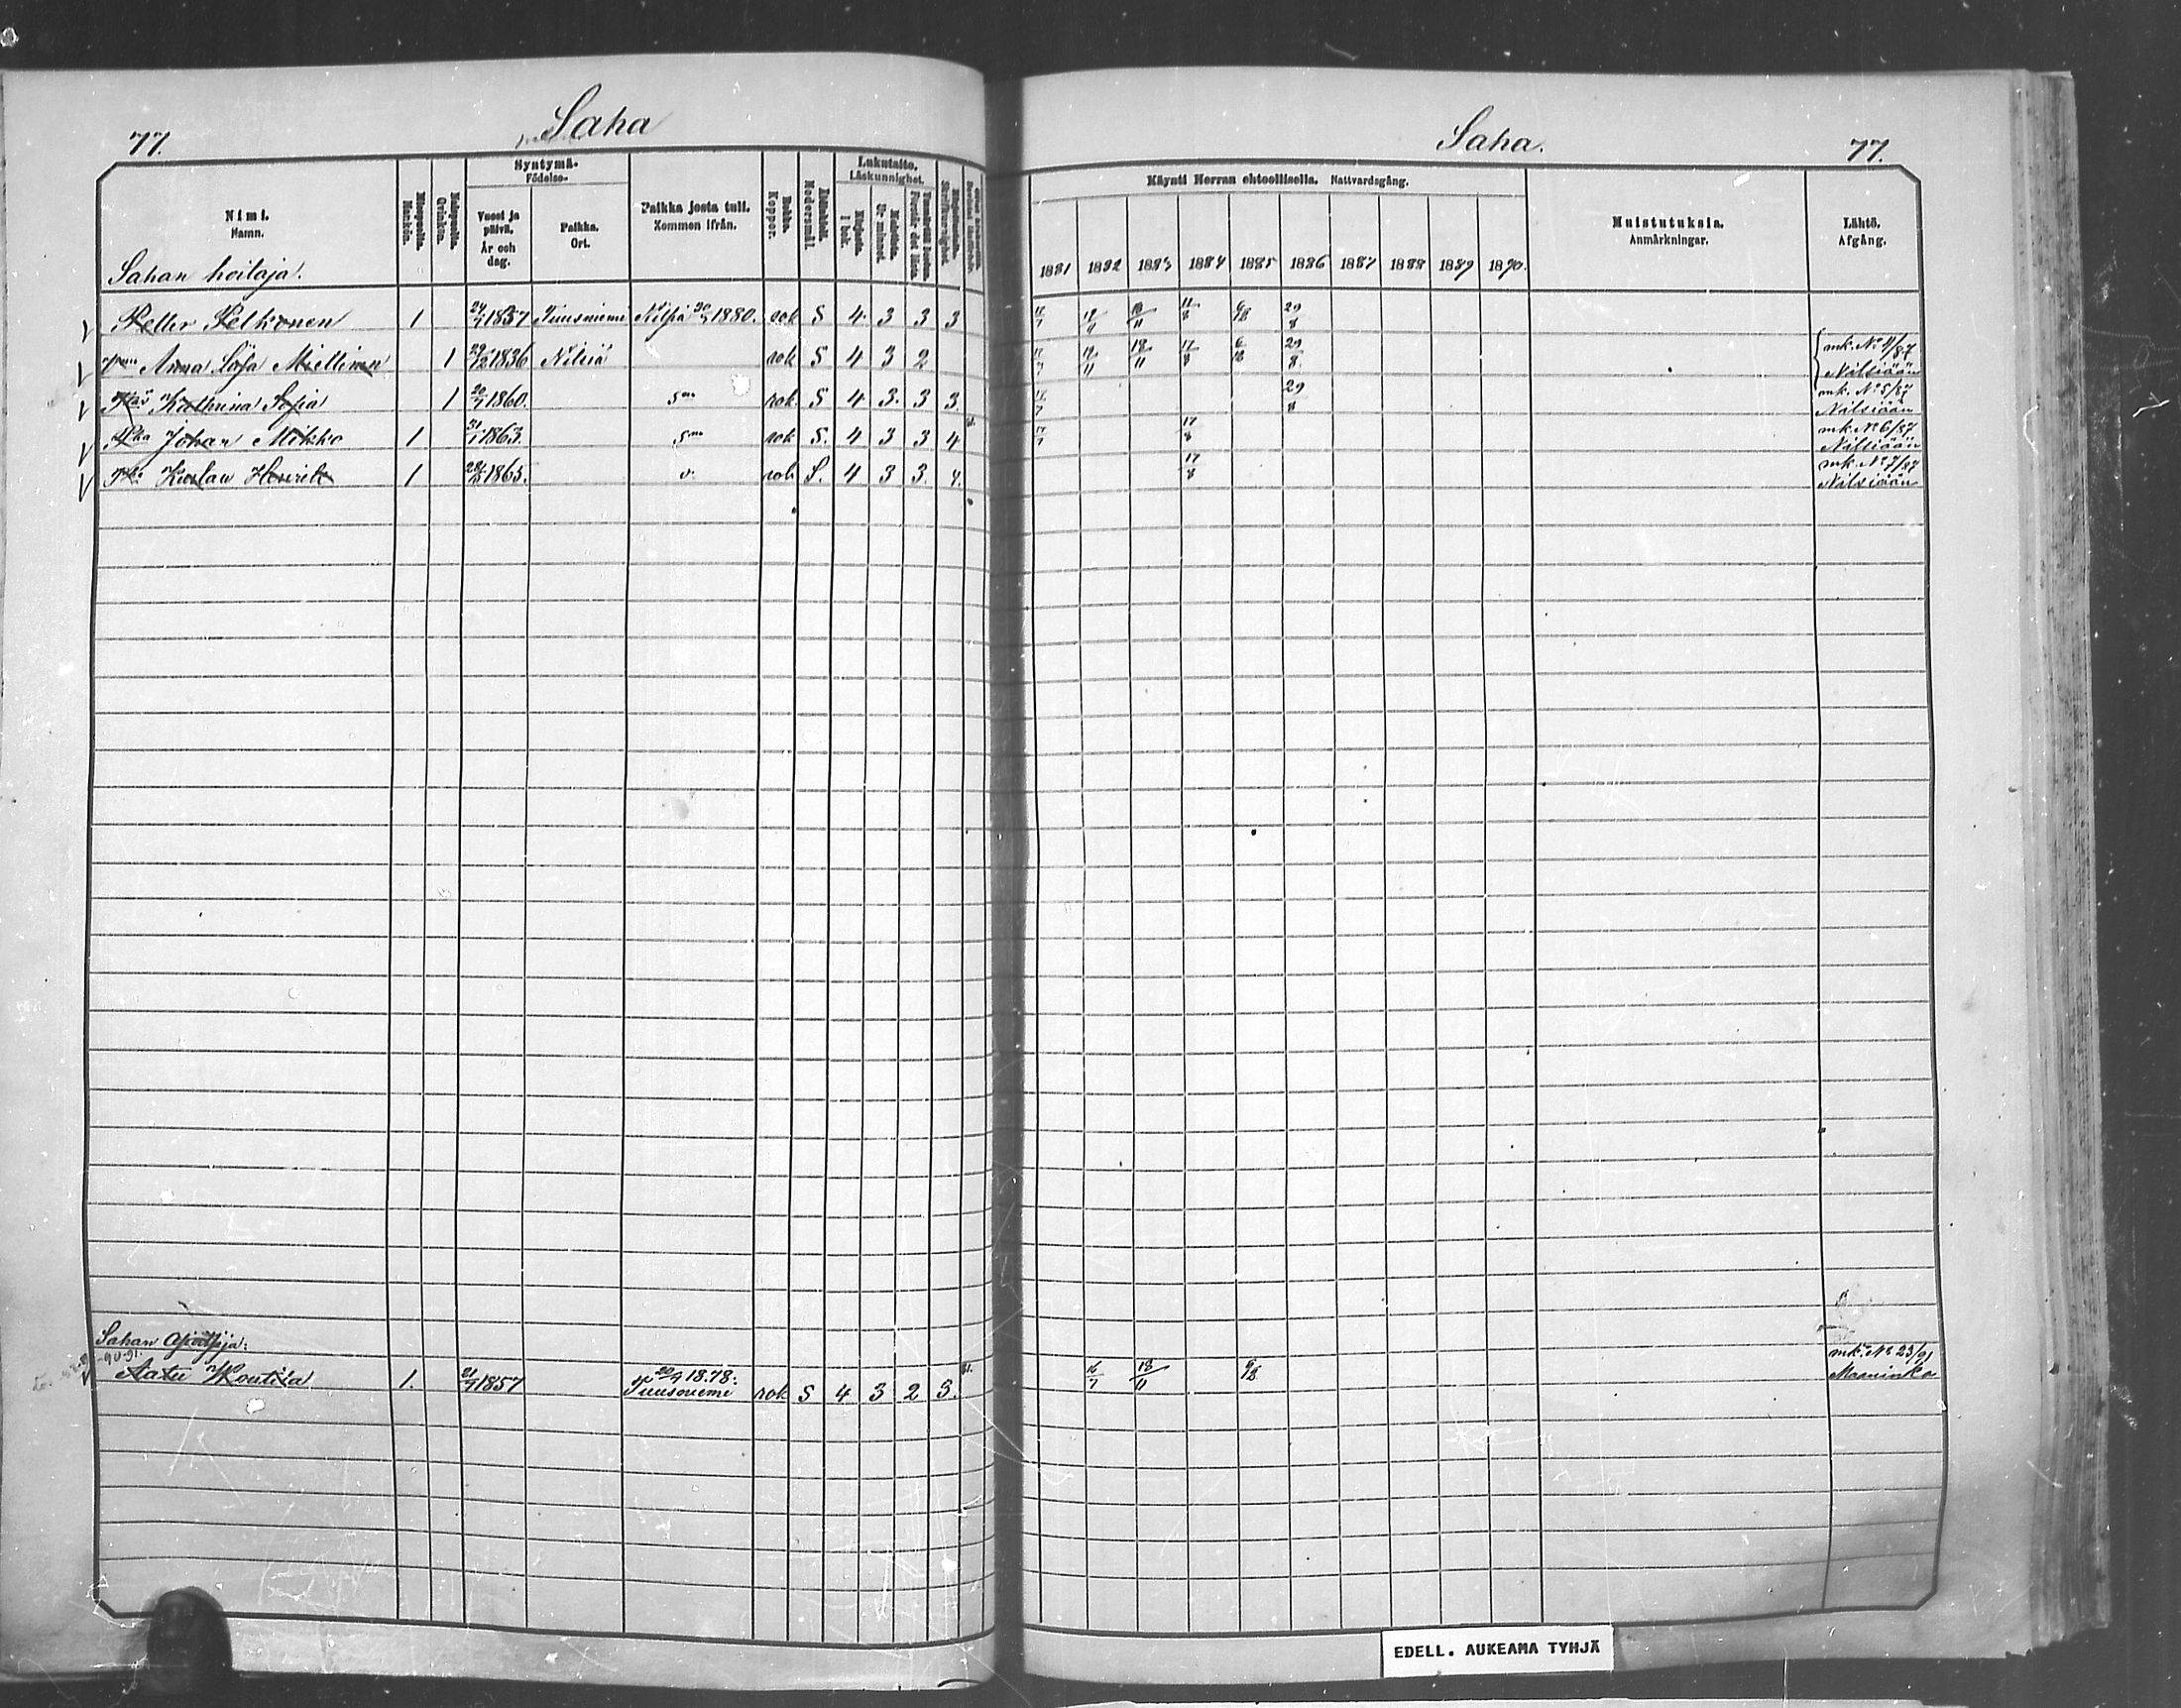 77. Saha
Nimi. Namn.
Miespuolia. Mankön.
Vaimopuolia. Qvinkön.
Syntymä. Födelse.
Vuosi ja päivä. År och dag.
Paikka. Ort.
Paikka josta tuli. Kommen ifrån.
Rokko. Koppor.
Modersmål.
Lukutaito. Läskunnighet.
I bok.
Ur minnet
Förstår det lästa
Skrifkunnighet
Sahan hoitaja.
Petter Pelkonen 1 24/7 1837 Tuusniemi Nilsiä 1880. rok S 4. 3 3 3
Anna Sofia Miettinen 1 29/12 1836 Nilsiä rok S 4 3 2
Kathrina Sofia 1 1860. rok. S 4. 3. 3 3.
Johan Mikko 1 31/1 1863. rok S. 4 3 3 4
Kustaa Henrik 1 1865. rok S. 4 3 3. 4.
Sahan
-90-91.
Aatu 1. 21/7 1857 1878. Tuusniemi rok S 4 3 2 3.
Saha. 77.
Käynti Herran ehtoollisella. Nattvardsgång.
Muistutuksia. Anmärkningar.
Lähtö. Afgång.
1881 1882 1883 1884 1885 1886 1887 1888 1889 1890.
17/7 18/11 17/8 6/12 29/8
17/7 19/11 18/11 17/8 6/12 29/8 mk. No 4/87 Nilsiään
17/7 29/8 mk. No 5/87 Nilsiään
17/7 17/8 mk. No 6/87 Nilsiään
17/8 mk. No 7/87 Nilsiään
16/7 18/11 6/12 mk. No 23/91 Maaninka
EDELL. AUKEAMA TYHJÄ